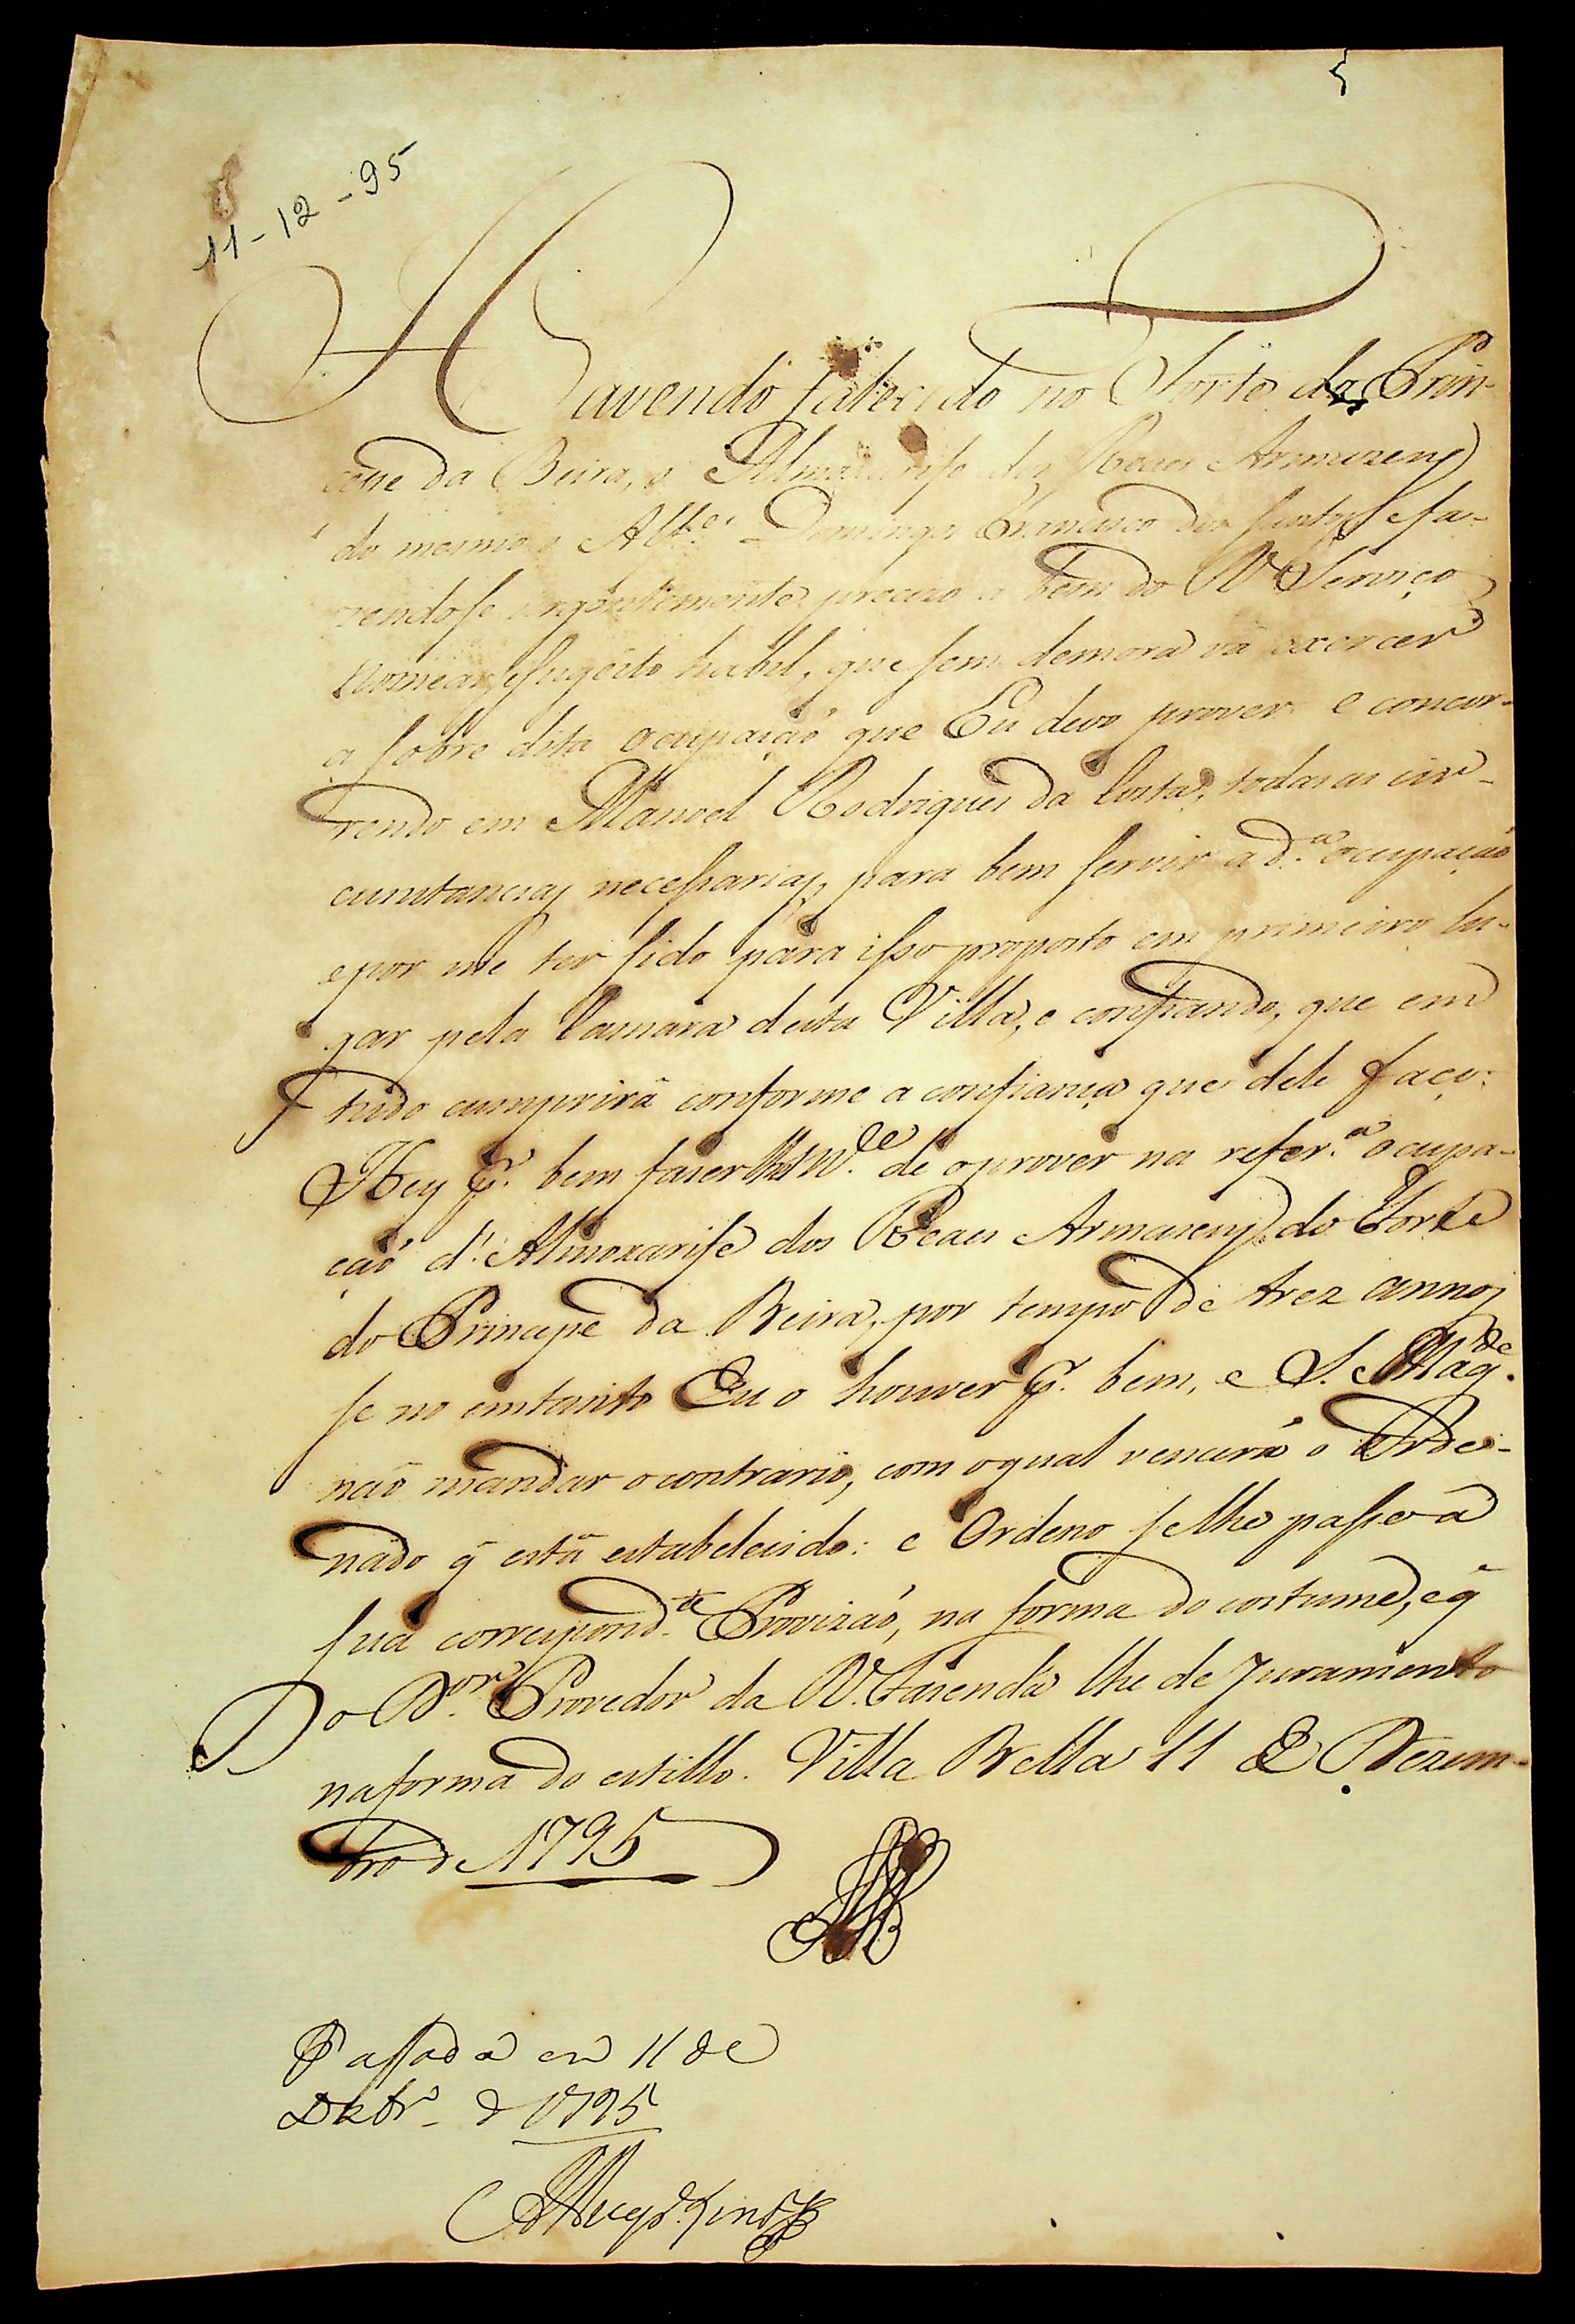 5
11-12-95
Havendo falecido no Forte do Prin-
cipe da Beira, o Almoxarife dos Reaes Armazens
do mesmo o Alf.es Domingos Francisco dos Santos, e fa-
zendose urgentemente precizo a bem do R. Serviço
nomear sugeito habil, que sem demora vá exercer
a sobre dita ocupação que Eu devo prover e concor-
rendo em Manoel Rodrigues da Costa, todas as cir-
cunstancias necessarias, para bem servir a d.a ocupação
e por me ter sido para isso proposto em primeiro lu-
gar pela Camara desta Villa, e confiando, que em
tudo cumprirá conforme a confiança que dele faço:
Hey p.r bem fazer M.ce de o prover na refer.a ocupa-
ção d'Almoxarife dos Reaes Armazens do Forte
do Principe da Beira, por tempo de trez annos
se no emtanto Eu o houver p.r bem, e S. Mag.de
não mandar o contrario, com o qual vencerá o Orde-
nado q̃ está estabelecido: e Ordeno se lhe passe a
sua correspond.te Provizaõ, na forma do costume, e q̃
o D.or Provedor da R. Fazenda lhe de Juramento
na forma do estillo. Villa Bella 11 de Dezem-
bro de 1795
Passada em 11 de
Dezbr.o d 1795